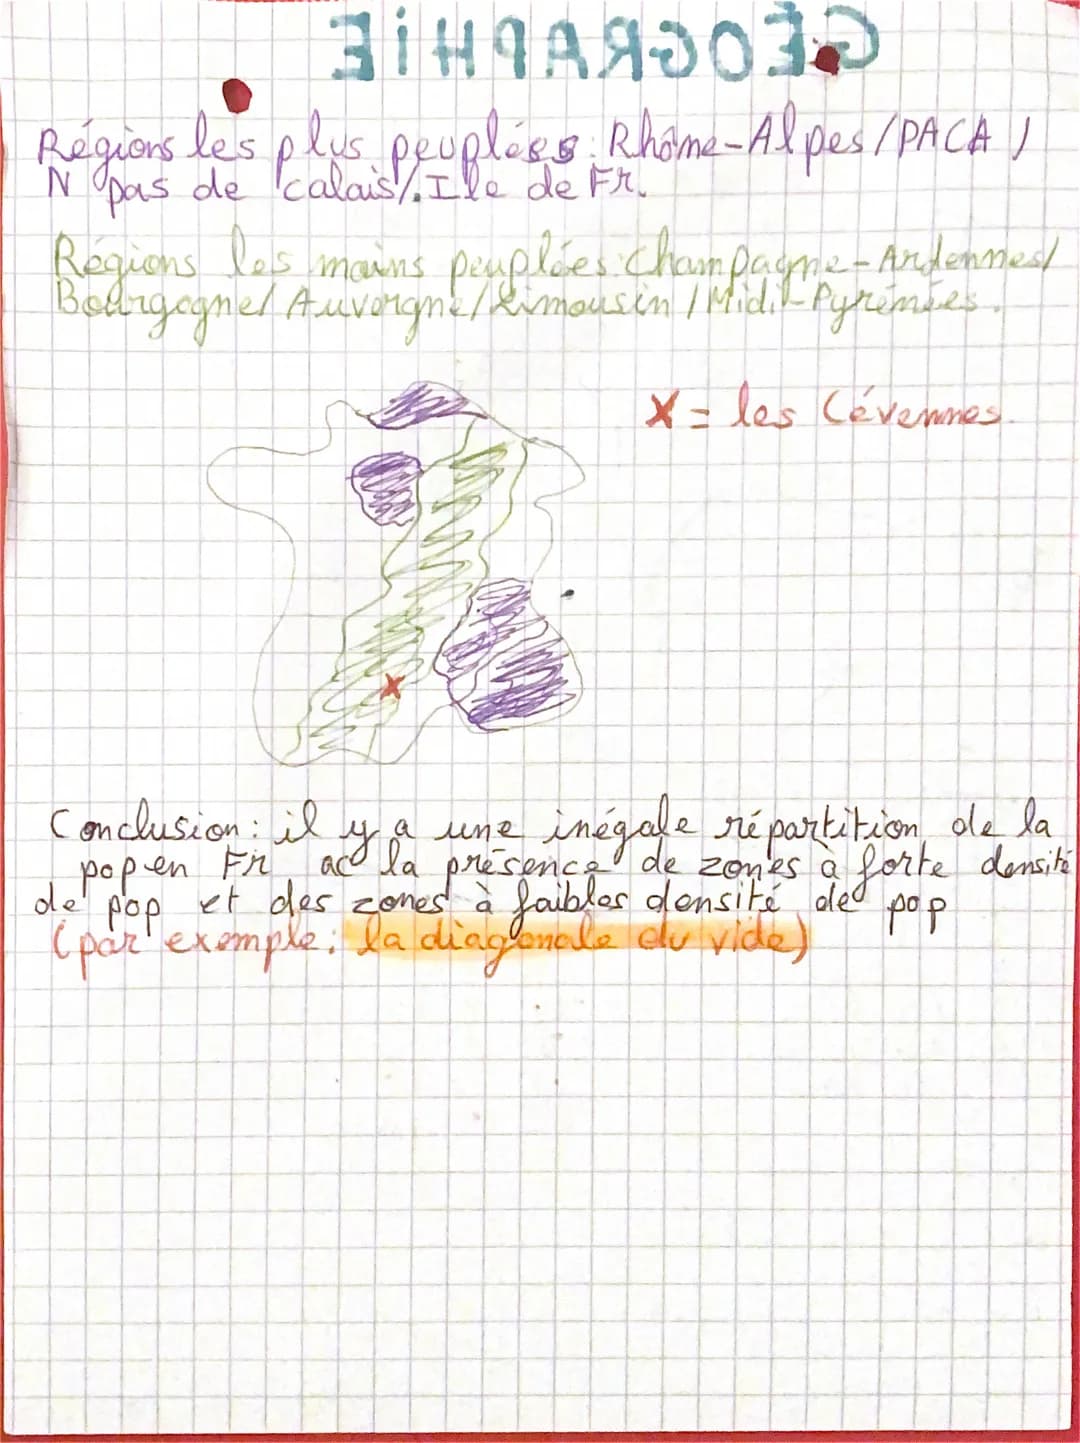 GÉOGRAPHIE
Régions les plus peuplées : Rhône-Alpes / PACA /
N pas de calais /. Ile de Fr.
Régions les moins peuplées : Champagne-Ardennes/
Bourgogne/ Auvergne/ Limousin / Midi-Pyrénées.
X = les Cévennes.
Conclusion : il y a une inégale répartition de la
pop en Fr ac la présence de zones à forte densité
de pop et des zones à faibles densité de pop
(par exemple : la diagonale du vide)